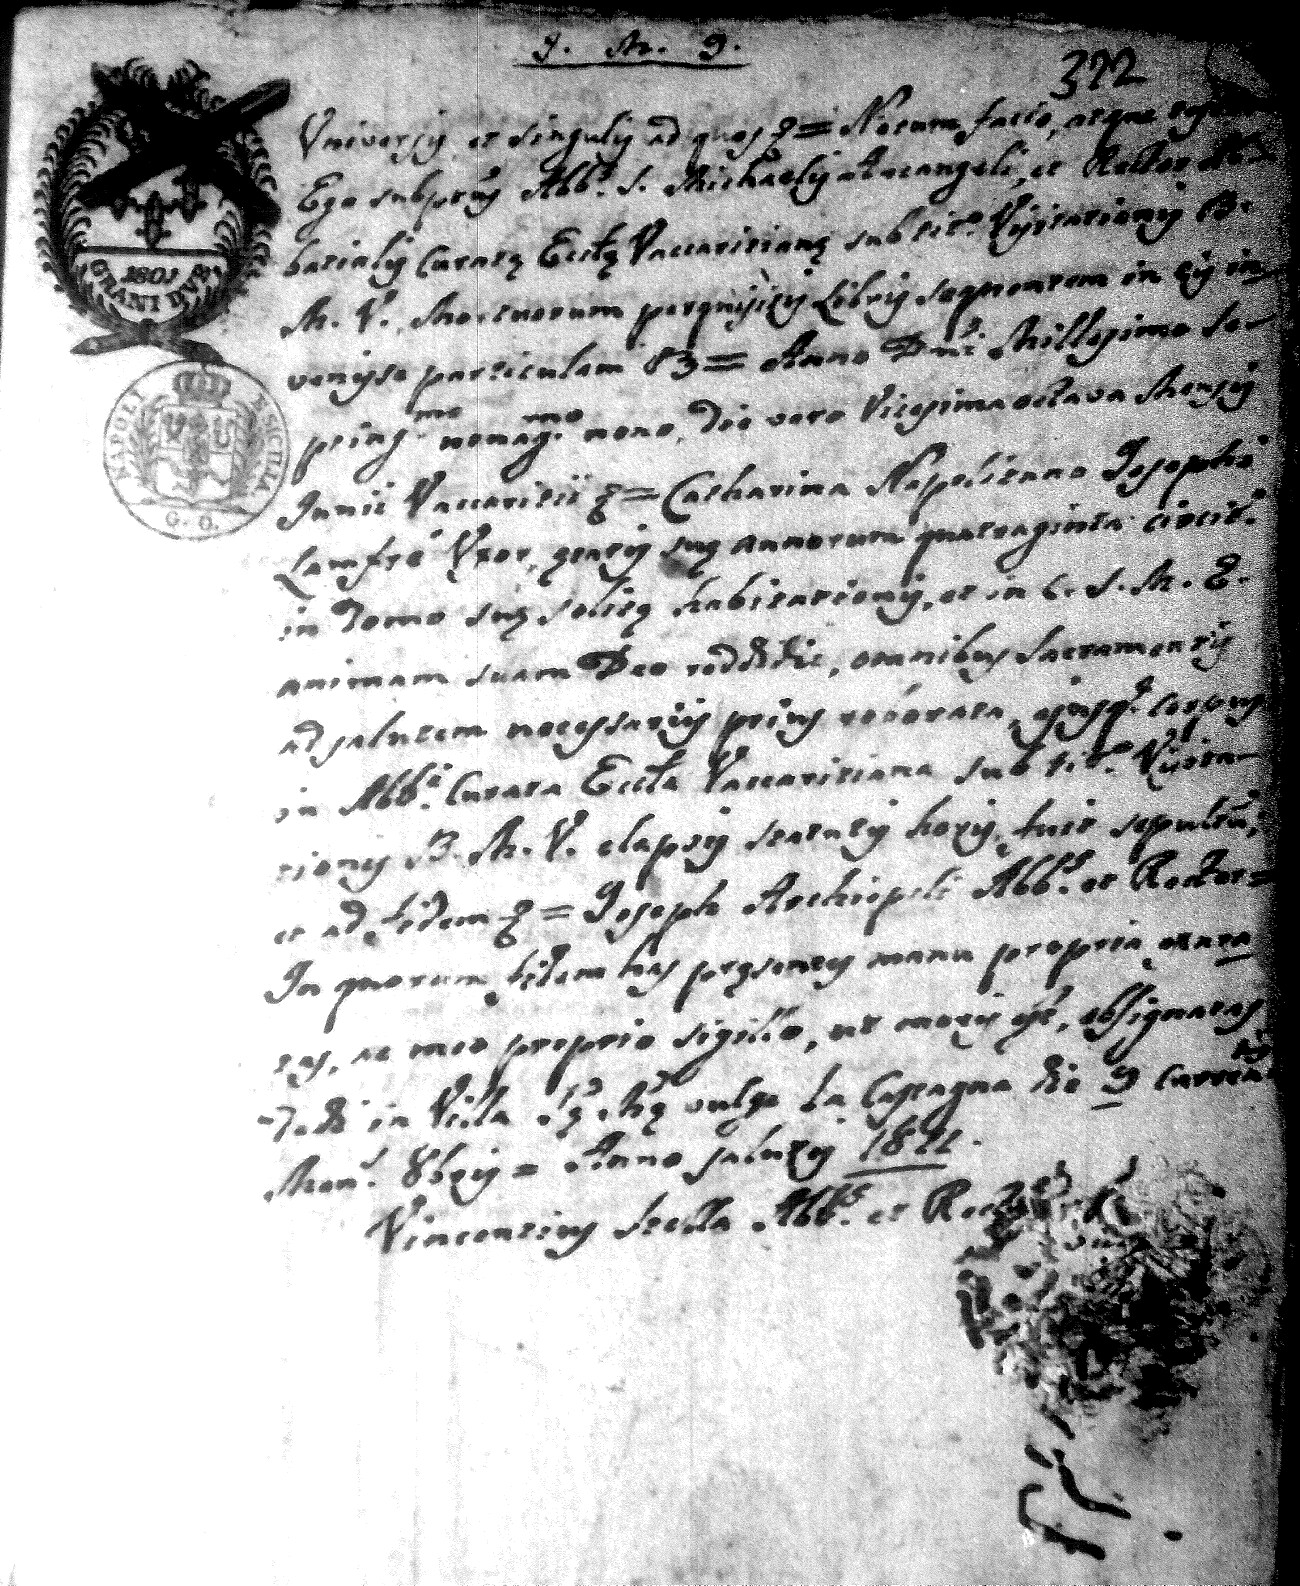 J. M. J.
372
Universis et singulis ad quos &= Notum facio, atque
Ego subptus Abb.s S. Michaelis Arcangeli, et Rector
batialis Curatę Ecclę Vaccaritianę sub tit.o Visitationis B.
M. V. Mortuorum perquisitis Libris sequentem in eis in
venisse particulam 83 = Anno Dni Millesimo Se
ptings.mo nonag.mo nono, die vero Vicesima octava Mensis
Junii Vaccaritii &= Catharina Napolitano Josephi
Lanfré Uxor, ętatis suę annorum quatraginta circit.r
in Domo suę solitę habitationis, et in C. S. M. E.
animam suam Deo reddidit, omnibus Sacramentis
ad salutem necessariis prius roborata, ejusq.e corpus
in Abb.i Curata Eccla Vaccaritiana sub tit.o Visita
tionis B. M. V. elapsis statutis horis, fuit sepultu,
et ad fidem &= Joseph Archiopoli Abb.s et Rector=
In quorum fidem has pręsentes manu propria exara
tas, ac meo proprio sigillo, ut moris est, obsignatas
dedi in Villa vulgo La Castagna die 9 curren
tis
Men.s 8bris = Anno salutis 1811.
Vincentius Stella Abb.s et Rector
1801
GRANI DUE
NAPOLI E SICILIA
G. O.